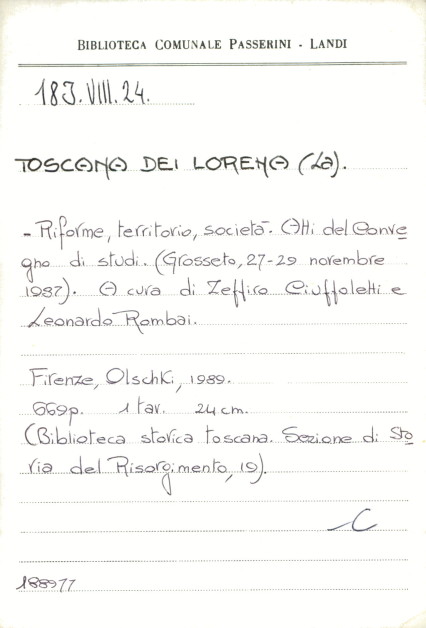 BIBLIOTECA COMUNALE PASSERINI - LANDI
18J.VIII.24.
TOSCANA DEI LORENA (La).
- Riforme, territorio, società. Atti del Conve
gno di studi. (Grosseto, 27-29 novembre
1987). A cura di Zeffiro Ciuffoletti e
Leonardo Rombai.
Firenze, Olschki, 1989.
669p. 1 tav. 24 cm.
(Biblioteca storica toscana. Sezione di Sto
ria del Risorgimento, 19).
C
188977